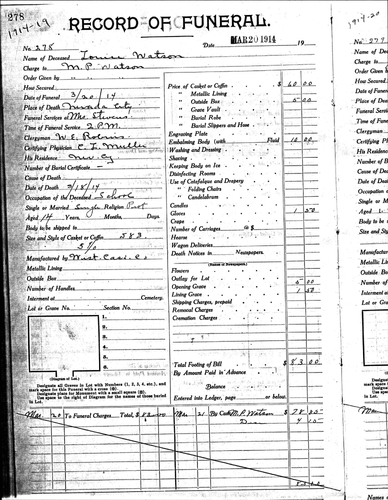 278
1914-19
RECORD OF FUNERAL.
No. 278 Date MAR 20 1914 19
Name of Deceased Louise Watson
Charge to M. P. Watson
Order Given by " "
How Secured
Date of Funeral 3/20/14
Place of Death Nevada City
Funeral Services at Mrs. Stevens
Time of Funeral Service 2 P.M.
Clergyman W. E.
Certifying Physician C. L. Muller
His Residence Nev Cy
Number of Burial Certificate
Cause of Death
Date of Death 3/18/14
Occupation of the Deceased School
Single or Married Single Religion Prot
Aged 14 Years, Months, Days.
Body to be shipped to
Size and Style of Casket or Coffin 583
5/0
Manufactured by West. Cas. Co.
Metallic Lining
Outside Box
Number of Handles
Interment at Cemetery.
Lot or Grave No. Section No.
1.
2.
3.
4.
5.
6.
(Diagram of Lot.)
Designate all Graves in Lot with Numbers (1, 2, 3, 4, etc.), and
mark space for this Funeral with a cross (⊗).
Designate place for Monument with a small square (▣).
Use space to the right of Diagram for the names of those buried
in Lot.
Price of Casket or Coffin $ 60 00
" Metallic Lining
" Outside Box 5 00
" Grave Vault
" Burial Robe
" Burial Slippers and Hose
Engraving Plate
Embalming Body (with Fluid) 10 00
Washing and Dressing
Shaving
Keeping Body on Ice
Disinfecting Rooms
Use of Catafalque and Drapery
" Folding Chairs
" Candelabrum
Candles
Gloves 1 50
Crape
Number of Carriages @ $
Hearse
Wagon Deliveries
Death Notices in Newspapers.
(Names of Newspapers)
Flowers
Outlay for Lot
Opening Grave 5 00
Lining Grave 1 50
Shipping Charges, prepaid
Removal Charges
Cremation Charges
Total Footing of Bill $ 83 00
By Amount Paid in Advance
Balance
Entered into Ledger, page or below.
Mar 20 To Funeral Charges Total, $ Mar 21 By Cash M. P. Watson $ 78 85
4 15
1914-20
No. 279